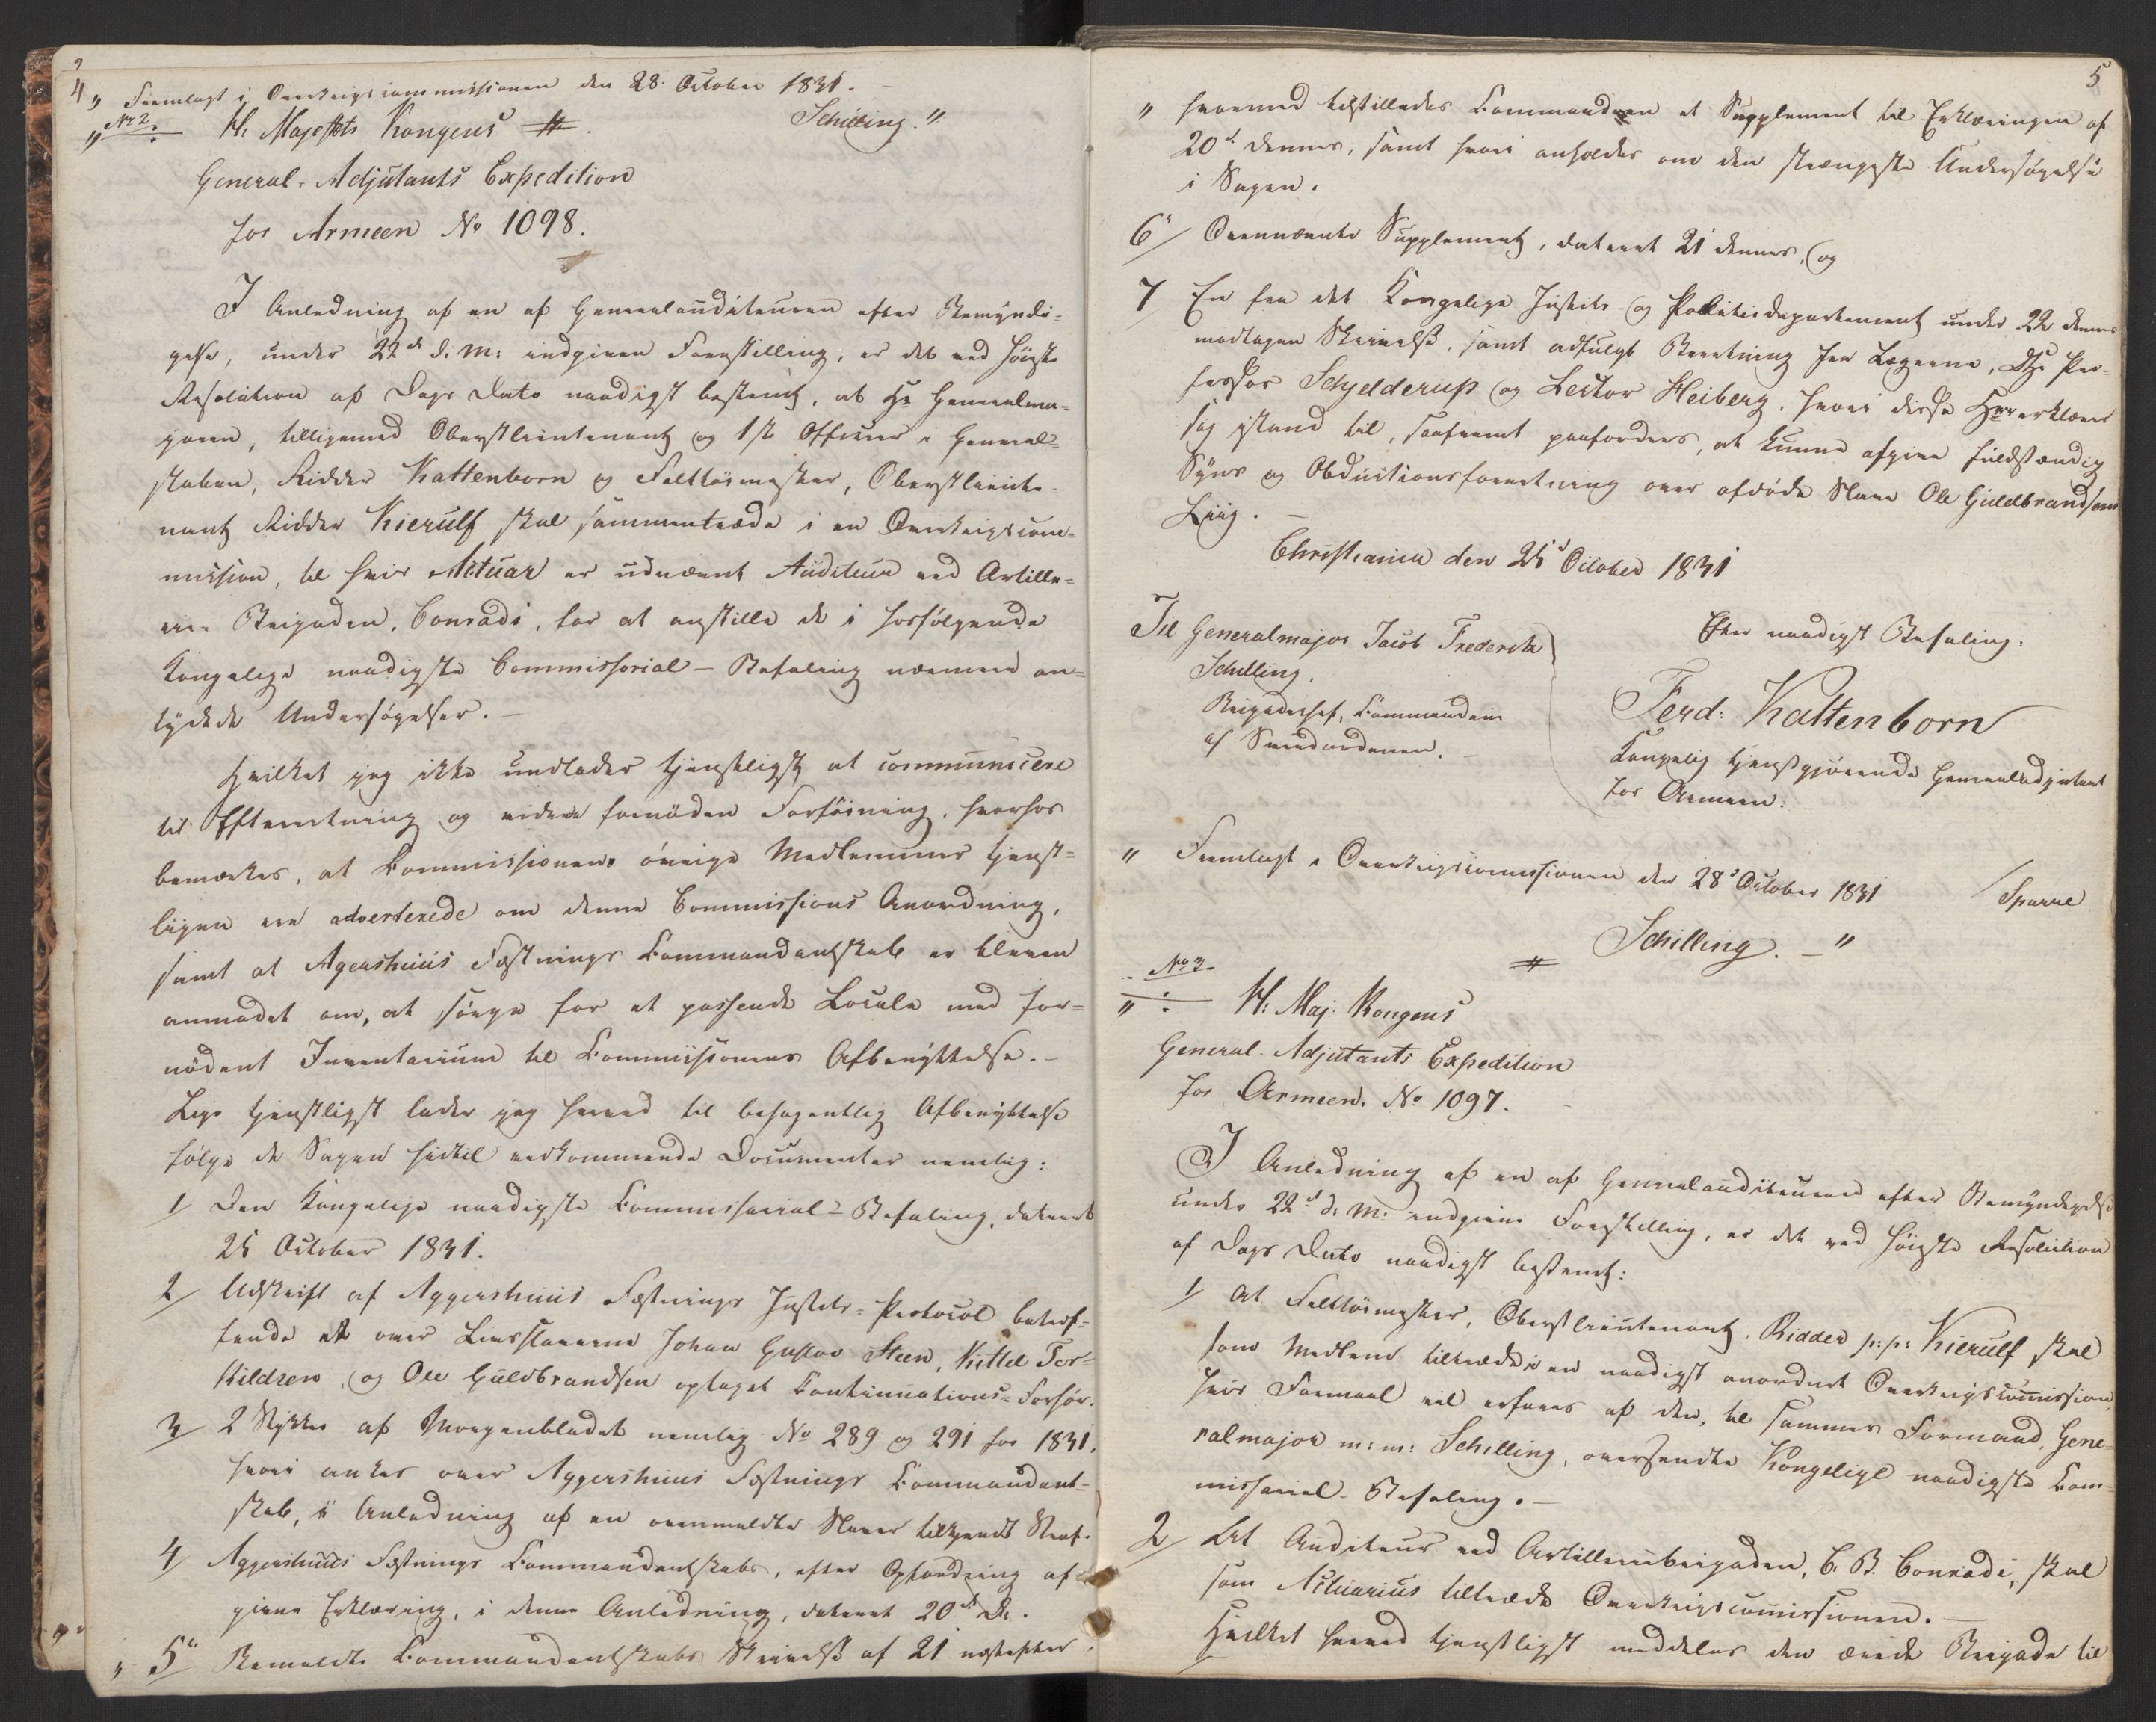 4
" Fremlagt i Overkrigscommissionen den 28. October 1831.
Schilling."
" No 2.
H. Majestets Kongens
General-Adjutants Expedition
for Armeen No 1098.
I Anledning af en af Generalauditeuren efter Bemyndi-
gelse, under 22de d. M: indgiven Forestilling, er det ved høieste
Resolution af Dags Dato naadigst bestemt, at Hr Generalma-
joren, tilligemed Oberstlieutenant og 1ste Officier i General-
staben, Ridder Kattenborn og Felttøimester, Oberstlieute-
nant Ridder Kierulf skal sammentræde i en Overkrigscom-
mission, til hvis Actuar er udnævnt Auditeur ved Artille-
rie-Brigaden, Conradi, for at anstille de i hosfølgende
Kongelige naadigste Commissorial-Befaling nærmere an-
tydede Undersøgelser. -
Hvilket jeg ikke undlader tjenstligst at communicere
til Efterretning og videre fornøden Forføining, hvorhos
bemærkes, at Commissionens øvrige Medlemmer tjenst-
ligen ere adverterede om denne Commissions Anordning,
samt at Agershuus Fæstnings Commandantskab er bleven
anmodet om, at sørge for et passende Locale med for-
nødent Inventarium til Commissionens Afbenyttelse. -
Lige tjenstligst lader jeg herved til behagentlig Afbenyttelse
følge de Sagen hidtil vedkommende Documenter nemlig:
1/ Den Kongelige naadigste Commissorial-Befaling, dateret
25 October 1831.
2/ Udskrift af Aggershuus Fæstnings Justits-Protocol betref-
fende et over Livsslaverne Johan Gustav Steen, Kittel Tor-
kildsen, og Ole Guldbrandsen optaget Continuations-Forhør.
3/ 2 Stykker af Morgenbladet nemlig No 289 og 291 for 1831,
hvori ankes over Aggershuus Fæstnings Commandant-
skab, i Anledning af en ovenmeldte Slaver tilkjendt Straf.
4/ Aggershuus Fæstnings Commandantskabs, efter Opfordring af-
givne Erklæring, i denne Anledning, dateret 20de Ds.
" 5/ Bemeldte Commandantskabs Skrivelse af 21 næstefter
5
" hvormed tilstilledes Commandoen et Supplement til Erklæringen af
20de dennes, samt hvori anholdes om den strængeste Undersøgelse
i Sagen.
6/ Ovennævnte Supplement, dateret 21 dennes, og
7 En fra det Kongelige Justits- og Politiedepartement under 22 dennes
modtagen Skrivelse, samt adfulgt Beretning fra Lægerne, Dhr Pro-
fessor Schjelderup og Lector Heiberg, hvori disse Hrr erklærer
sig istand til, saafremt paafordres, at kunne afgive fuldstændig
Syns og Obductionsforretning over afdøde Slave Ole Guldbrandsens
Liig. -
Christiania den 25d October 1831
Til Generalmajor Jacob Frederik
Schilling,
Brigadechef, Commandeur
af Sværdordenen. -
Efter naadigst Befaling:
Ferd: Kattenborn
Kongelig tjenstgjørende Generaladjutant
for Armeen.
" Fremlagt i Overkrigscommissionen den 28d October 1831
Sparre
Schilling. - "
No 3.
" H: Maj: Kongens
General-Adjutants Expedition
for Armeen. No 1097.
I Anledning af en af Generalauditeuren efter Bemyndigelse
under 22d d: M: indgiven Forestilling, er det ved høieste Resolution
af Dags Dato naadigst bestemt:
1/ At Felttøimester, Oberstlieutenant, Ridder p: p: Kierulf skal
som Medlem tiltræde i en naadigst anordnet Overkrigscommission,
hvis Formaal vil erfares af den, til sammes Formand, Gene-
ralmajor m: m: Schilling, oversendte Kongelige naadigste Com-
missorial-Befaling. -
2/ At Auditeur ved Artilleribrigaden, C. B. Conradi, skal
som Actuarius tiltræde Overkrigscommissionen. -
Hvilket herved tjenstligst meddeles den ærede Brigade til